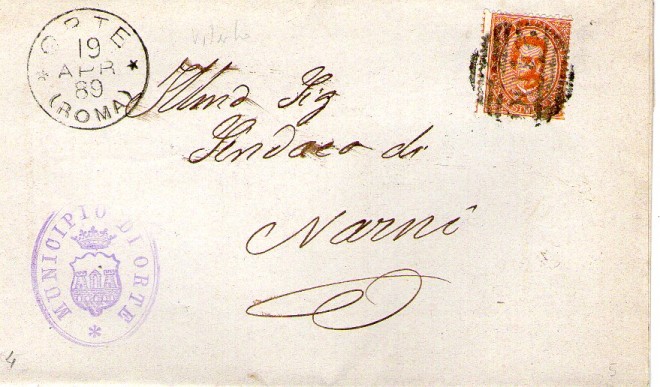 ORTE
19
APR
89
(ROMA)
Illmo Sig
Sindaco di
Narni
MUNICIPIO DI ORTE
4
5